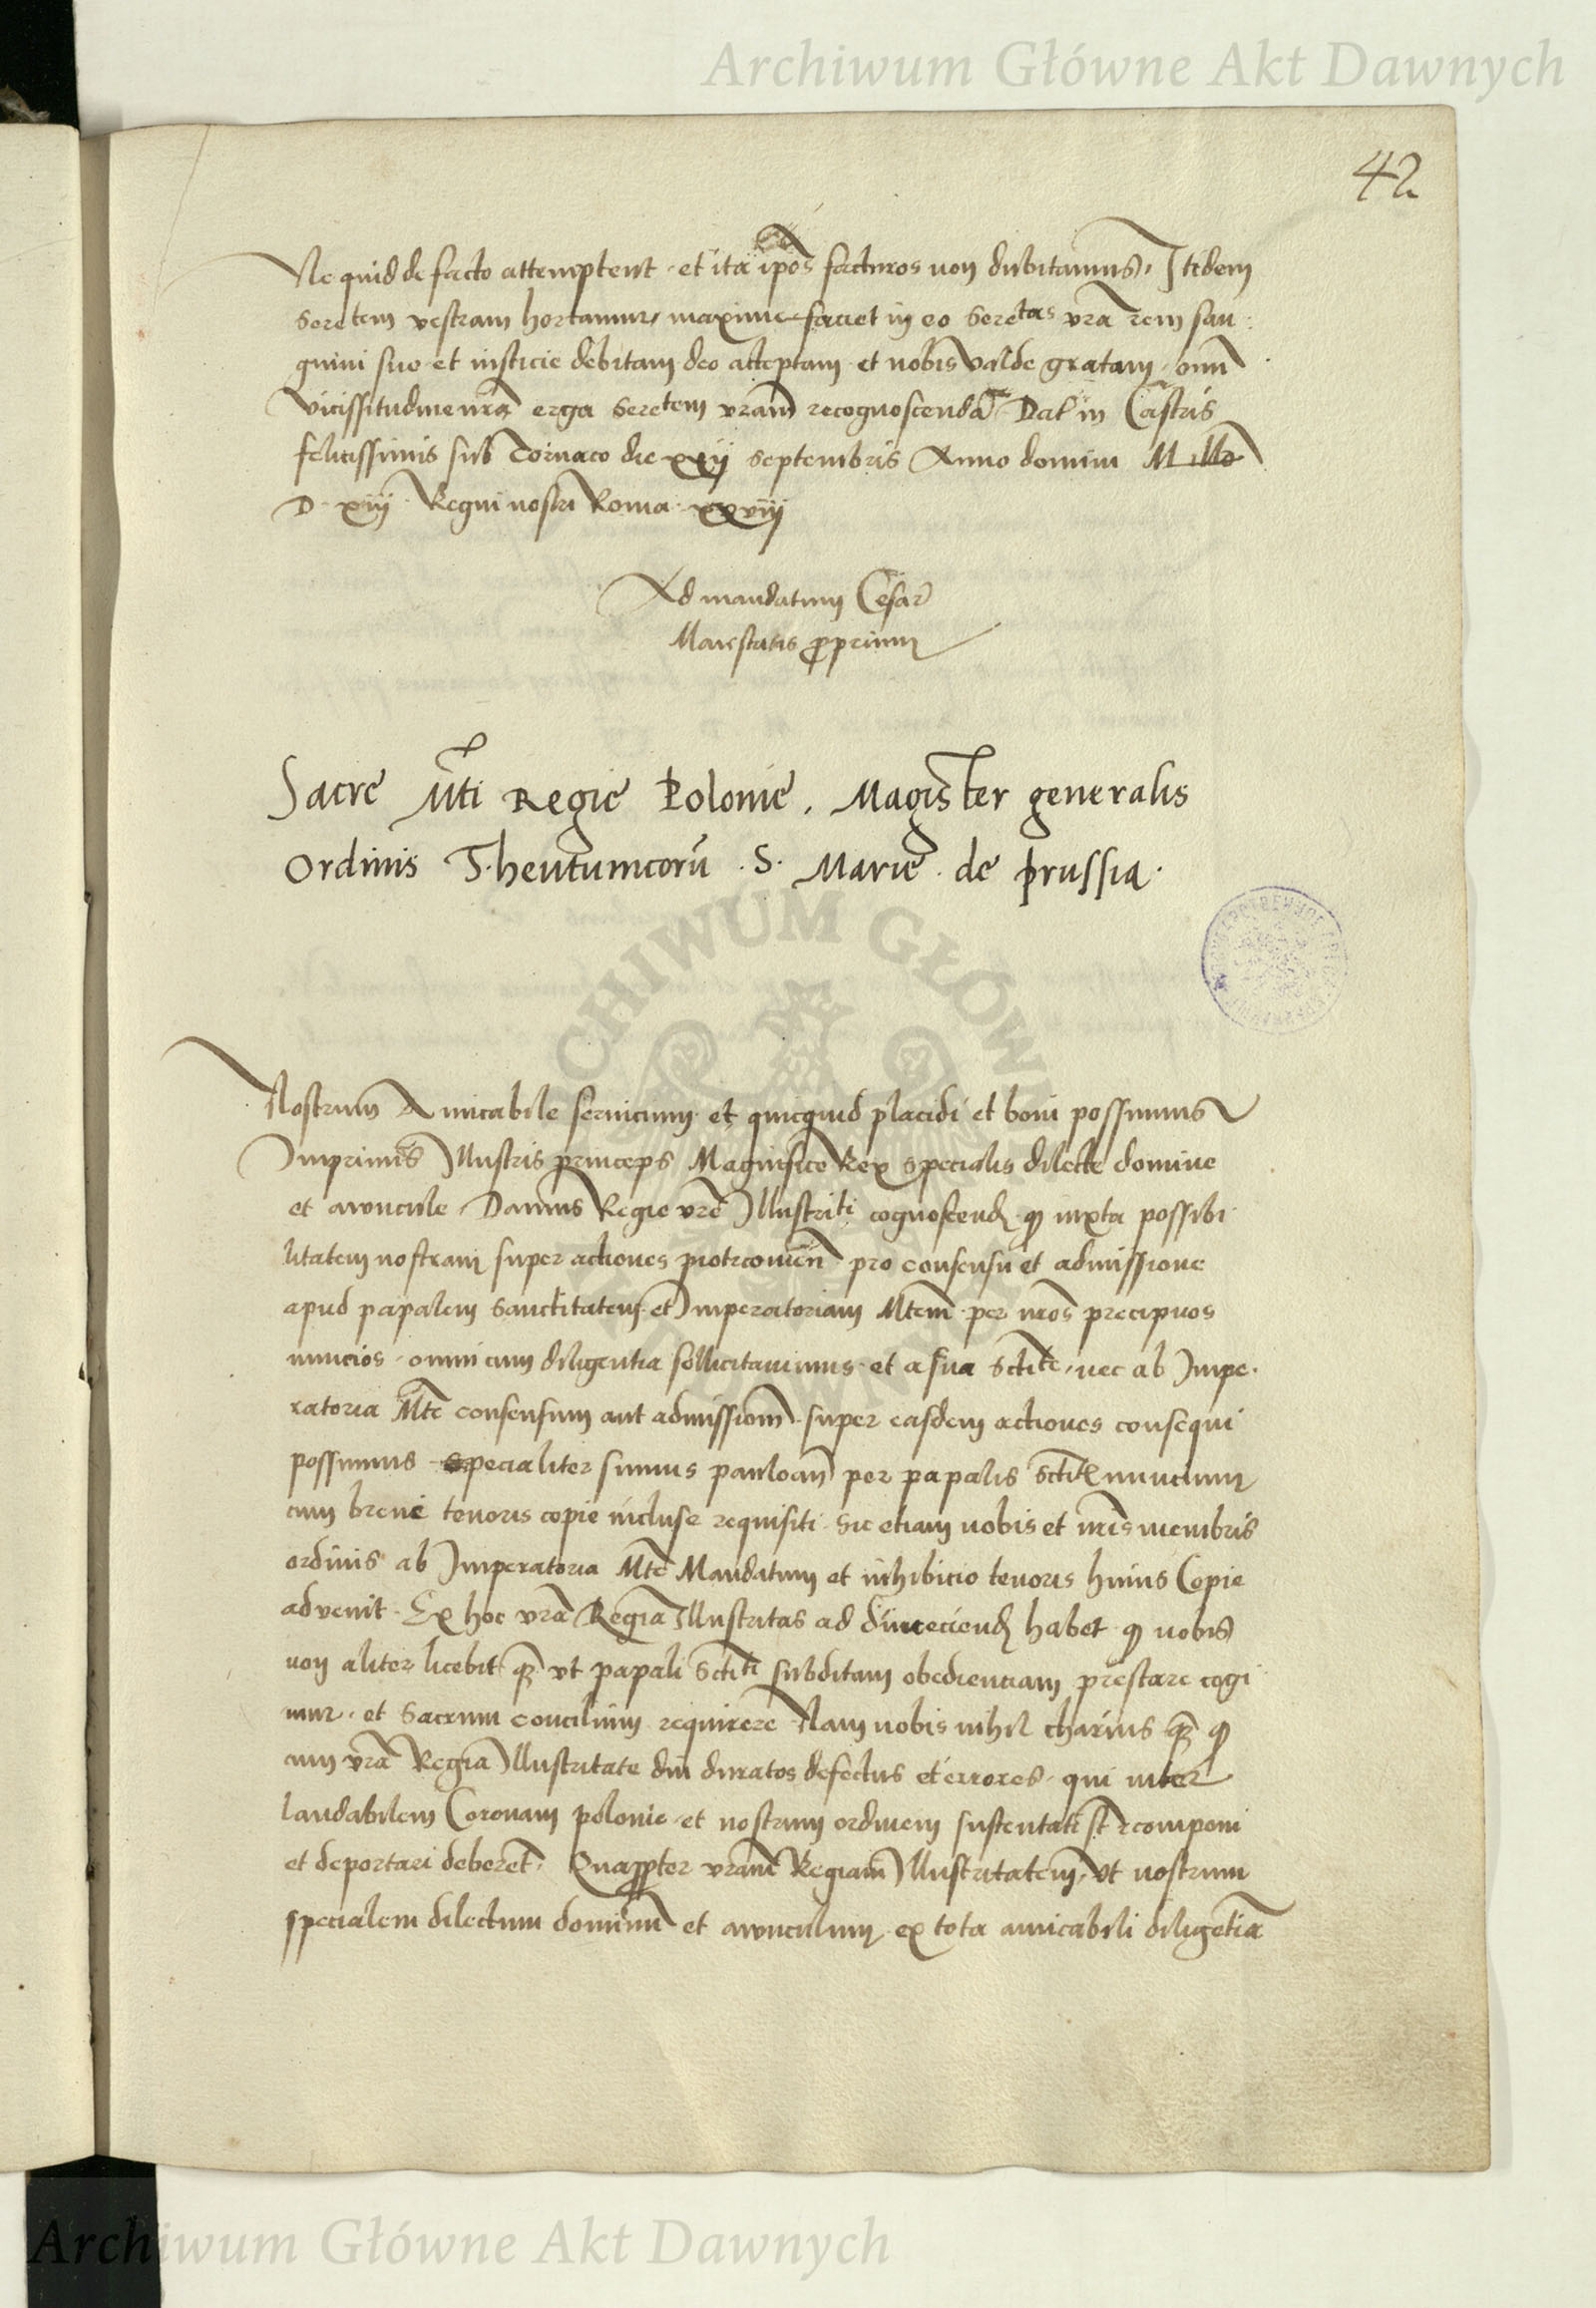 Archiwum Główne Akt Dawnych
42
Ne quid de facto attemptent et ita ip̄os facturos non dubitamus, Itidem
Seretem vestram hortamur, maxime faciet in eo Seretas vrā rem san
guini suo et iusticie debitam deo acceptam et nobis valde gratam omī
vicissitudine nrā erga Seretem vrām recognoscendā Dat in Castris
felicissimis sub Tornaco die xxij Septembris Anno domini Millo
D xiij Regni nostri Roma xxviij
Ad mandatum Cesar
Maiestatis proprium
Sacre Mti Regie Polonie. Magister generalis
Ordinis Theutunicorū .S. Marie de prussia.
Nostrum Amicabile seruicium et quicquid placidi et boni possumus
Imprimis Illustris princeps Magnifice Rex specialis dilecte domine
et avuncule Damus Regie vrē Illustriti cognoscend q iuxta possibi
litatem nostram super actiones piotrcouien pro consensu et admissione
apud papalem Sanctitatem et Imperatoriam Mtem per nros precipuos
nuncios omni cum diligentia sollicitauimus et a sua Sctite, nec ab Impe
ratoria Mte consensum aut admissionem super easdem actiones consequi
possumus specialiter sumus pauloan per papalis Sctitis nuncium
cum breui tenoris copie incluse requisiti Sic etiam nobis et nris membris
ordinis ab Imperatoria Mte Mandatum et inhibicio tenoris huius Copie
advenit Ex hoc vrā Regia Illustritas ad habet q nobis
non aliter licebit q̄ vt papali Sctiti subditam obedienciam prestare cogi
mur, et Sacrum concilium requirere Nam nobis nihil charius q̄ q
cum vrā Regia Illustritate diu duratos defectus et errores qui inter
laudabilem Coronam polonie et nostrum ordinem sustentati st componi
et deportari deberet, Quapropter vram Regiam Illustritatem, vt nostrum
specialem dilectum dominū et avunculum ex tota amicabili diligētia
Archiwum Główne Akt Dawnych